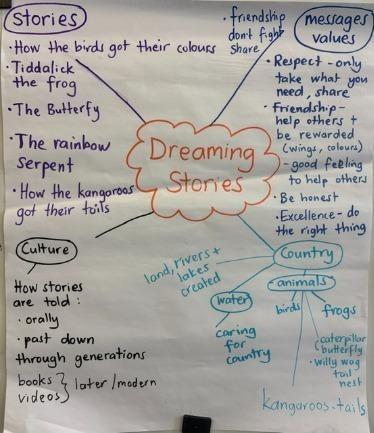 Stories
• How the birds got their colours
• Tiddalick
the frog
• The Butterfy
• The rainbow
Serpent
• How the kangaroos
got their tails
• friendship
don't fight
share
messages
values
• Respect - only
take what you
need, share
• Friendship -
help others +
be rewarded
(wings, colours)
- good feeling
to help others
• Be honest
• Excellence - do
the right thing
Dreaming
Stories
Culture
How stories
are told:
• orally
• past down
through generations
books } later/modern
videos
Country
land, rivers +
lakes
created
water
caring
for
country
animals
birds
frogs
(caterpillar
butterfly
• willy wag
tail
nest
kangaroos - tails